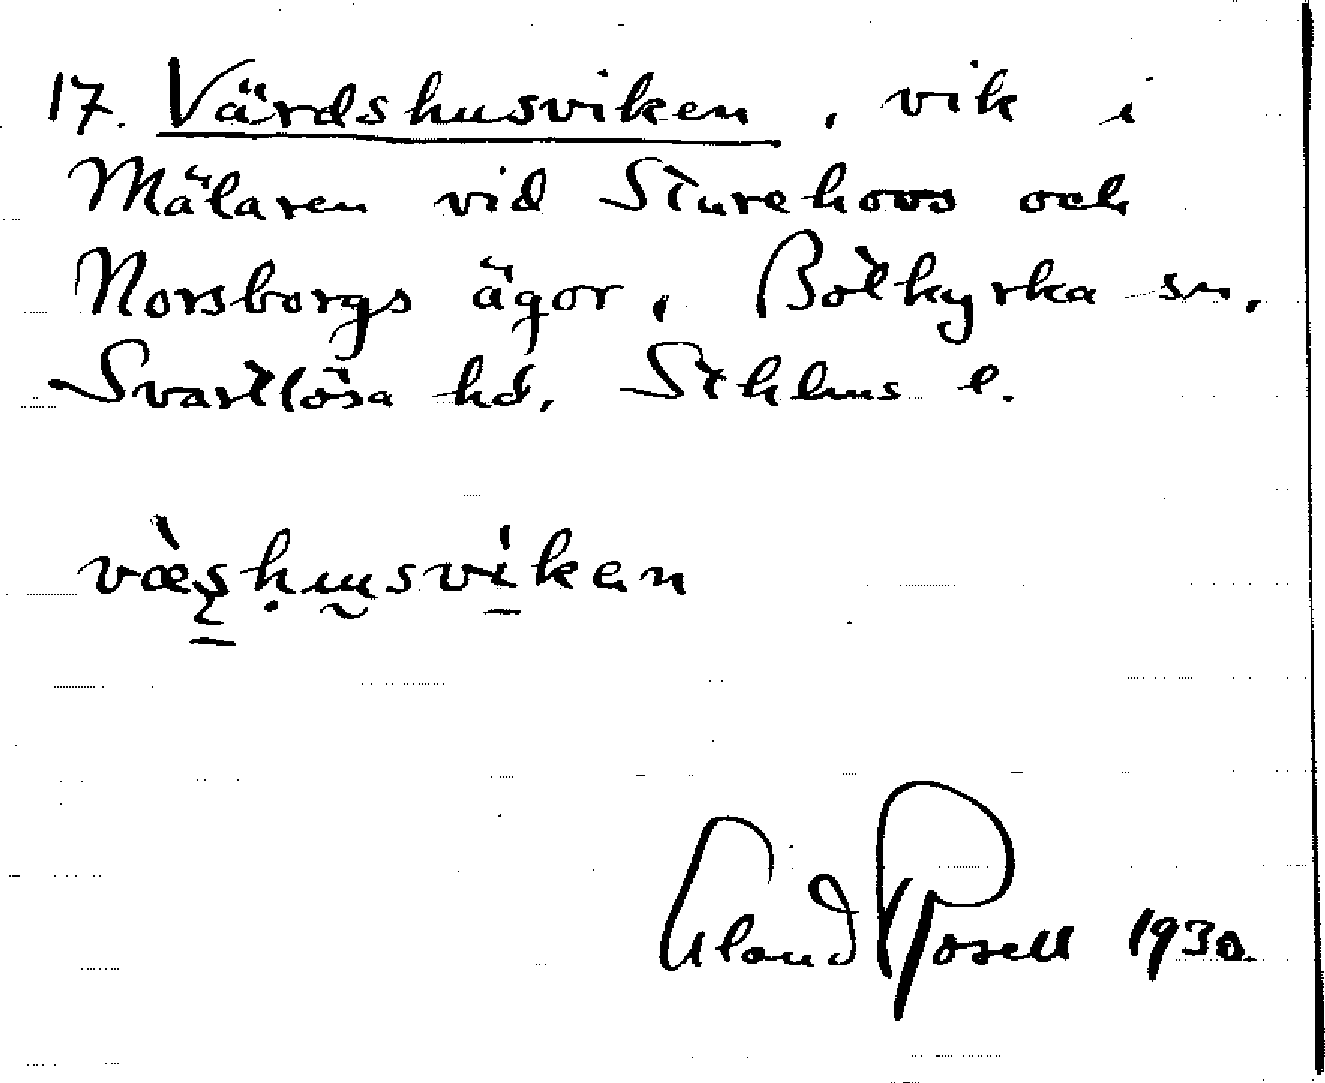 17. Värdshusviken, vik i
Mälaren vid Sturehovs och
Norsborgs ägor, Botkyrka sn,
Svartlösa hd, Sthlms l.
Rosell 1930.